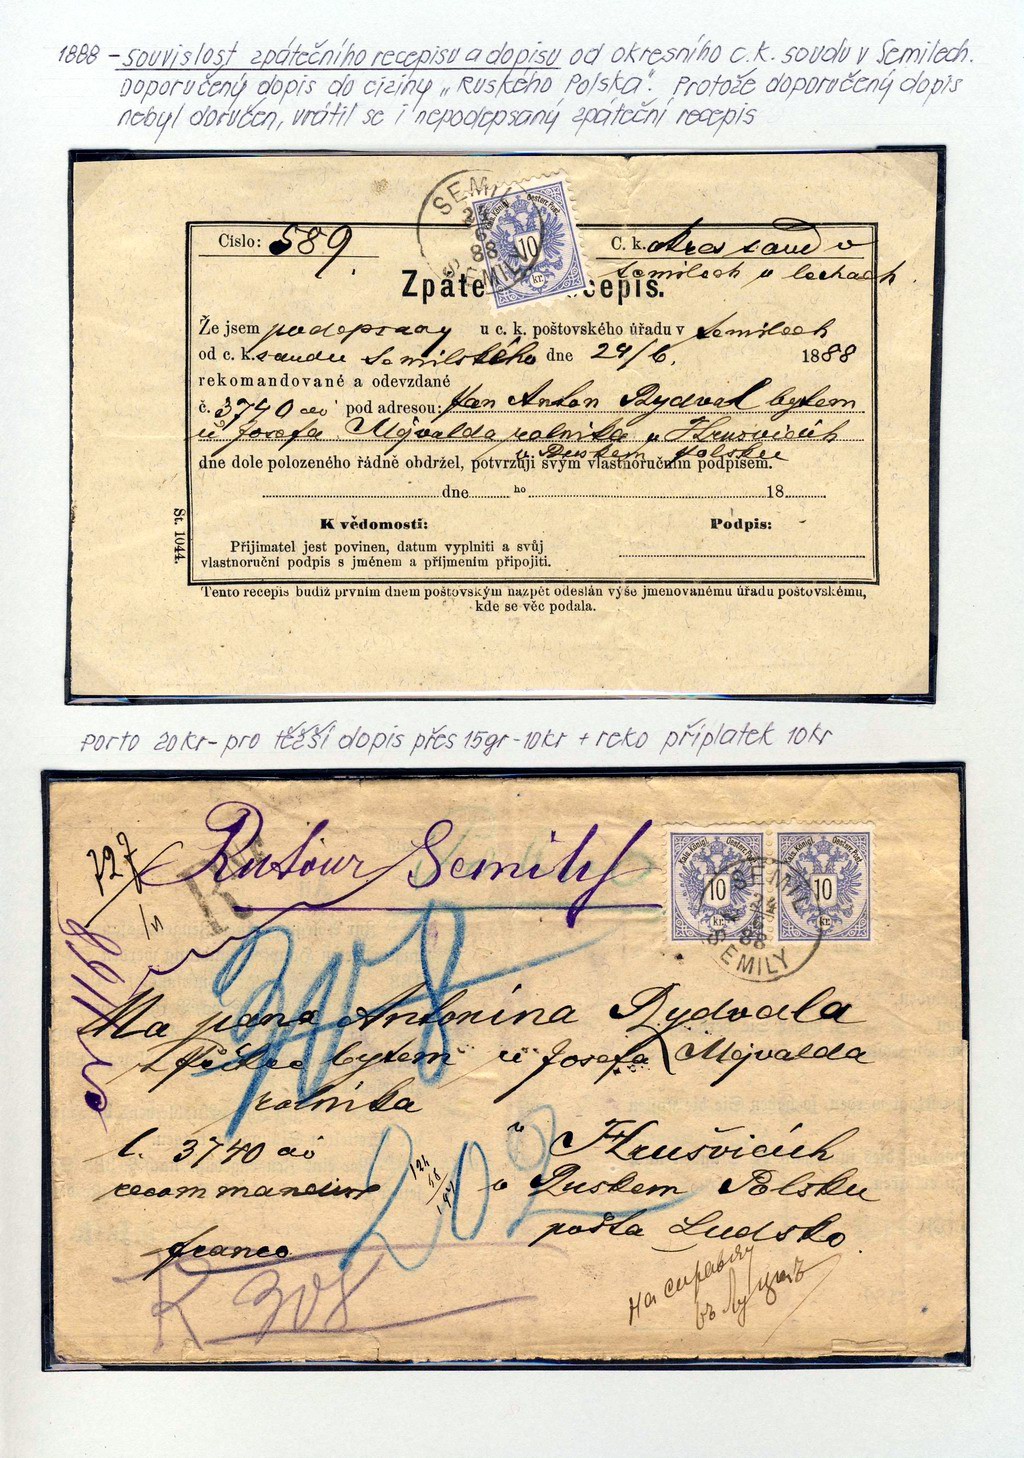 1888 – souvislost zpátečního recepisu a dopisu od okresního c.k. soudu v Semilech.
Doporučený dopis do ciziny „Ruského Polska“. Protože doporučený dopis
nebyl doručen, vrátil se i nepodepsaný zpáteční recepis
SEMILY
24
6
88
SEMILY
Kais. Königl. Oesterr. Post.
10
kr.
Číslo: 589.
C. k. okres soud v
Semilech v Čechách
Zpáte cepis.
Že jsem podepsaný u c. k. poštovského úřadu v Semilech
od c. k. soudu Semilského dne 24/6. 1888
rekomandované a odevzdané
č. 3740 pod adresou: Jan Anton Rydval bytem
u Josefa Mejvalda rolníka v Hrušvicích
v Ruskem Polsku
dne dole položeného řádně obdržel, potvrzuji svým vlastnoručním podpisem.
dne ho 18
K vědomosti: Podpis:
Přijimatel jest povinen, datum vyplniti a svůj
vlastnoruční podpis s jménem a příjmením připojiti.
St. 1044.
Tento recepis budiž prvním dnem poštovským nazpět odeslán výše jmenovanému úřadu poštovskému,
kde se věc podala.
porto 20kr – pro těžší dopis přes 15gr – 10kr + reko příplatek 10kr
727
Retour Semily
R
Kais. Königl. Oesterr. Post.
10
kr.
Kais. Königl. Oesterr. Post.
10
kr.
SEMILY
88
SEMILY
308
Na pana Antonína Rydvala
bytem u Josefa Mejvalda
rolníka
č. 3740 v Hrušvicích
recommandirt v Ruskem Polsku
franco pošta Ludsko
202
R 308
на справку
въ Луцкъ